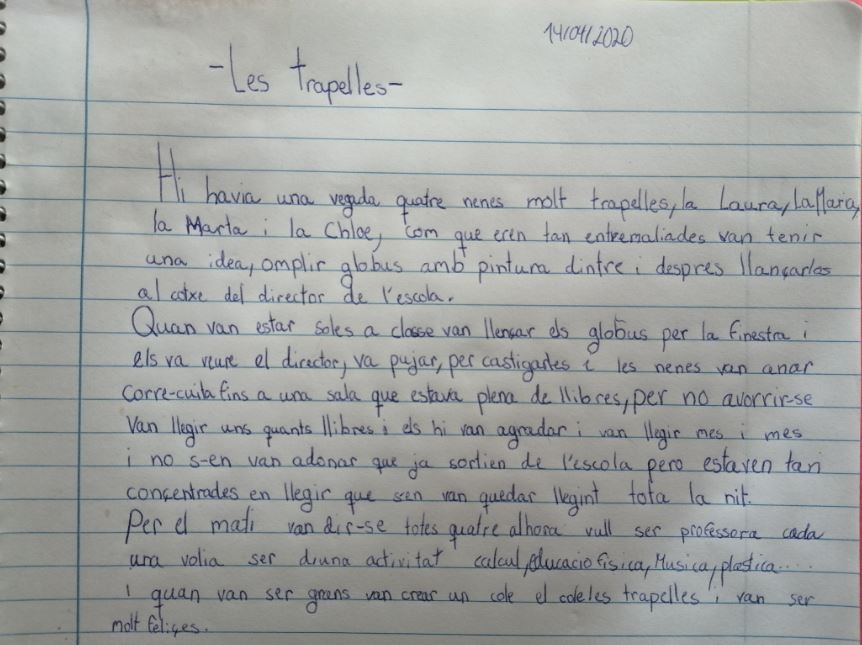 14/04/2020
-Les trapelles-
Hi havia una vegada quatre nenes molt trapelles, la Laura, la Maria,
la Marta i la Chloe, com que eren tan entremaliades van tenir
una idea, omplir globus amb pintura dintre i despres llançarles
al cotxe del director de l'escola.
Quan van estar soles a classe van llençar els globus per la finestra i
els va veure el director, va pujar, per castigarles i les nenes van anar
corre-cuita fins a una sala que estava plena de llibres, per no avorrir-se
van llegir uns quants llibres i els hi van agradar i van llegir mes i mes
i no s-en van adonar que ja sortien de l'escola pero estaven tan
concentrades en llegir que sen van quedar llegint tota la nit.
Per el mati van dir-se totes quatre alhora vull ser professora cada
una volia ser d'una activitat calcul, educacio fisica, Musica, plastica....
i quan van ser grans van crear un cole el cole les trapelles i van ser
molt feliçes.